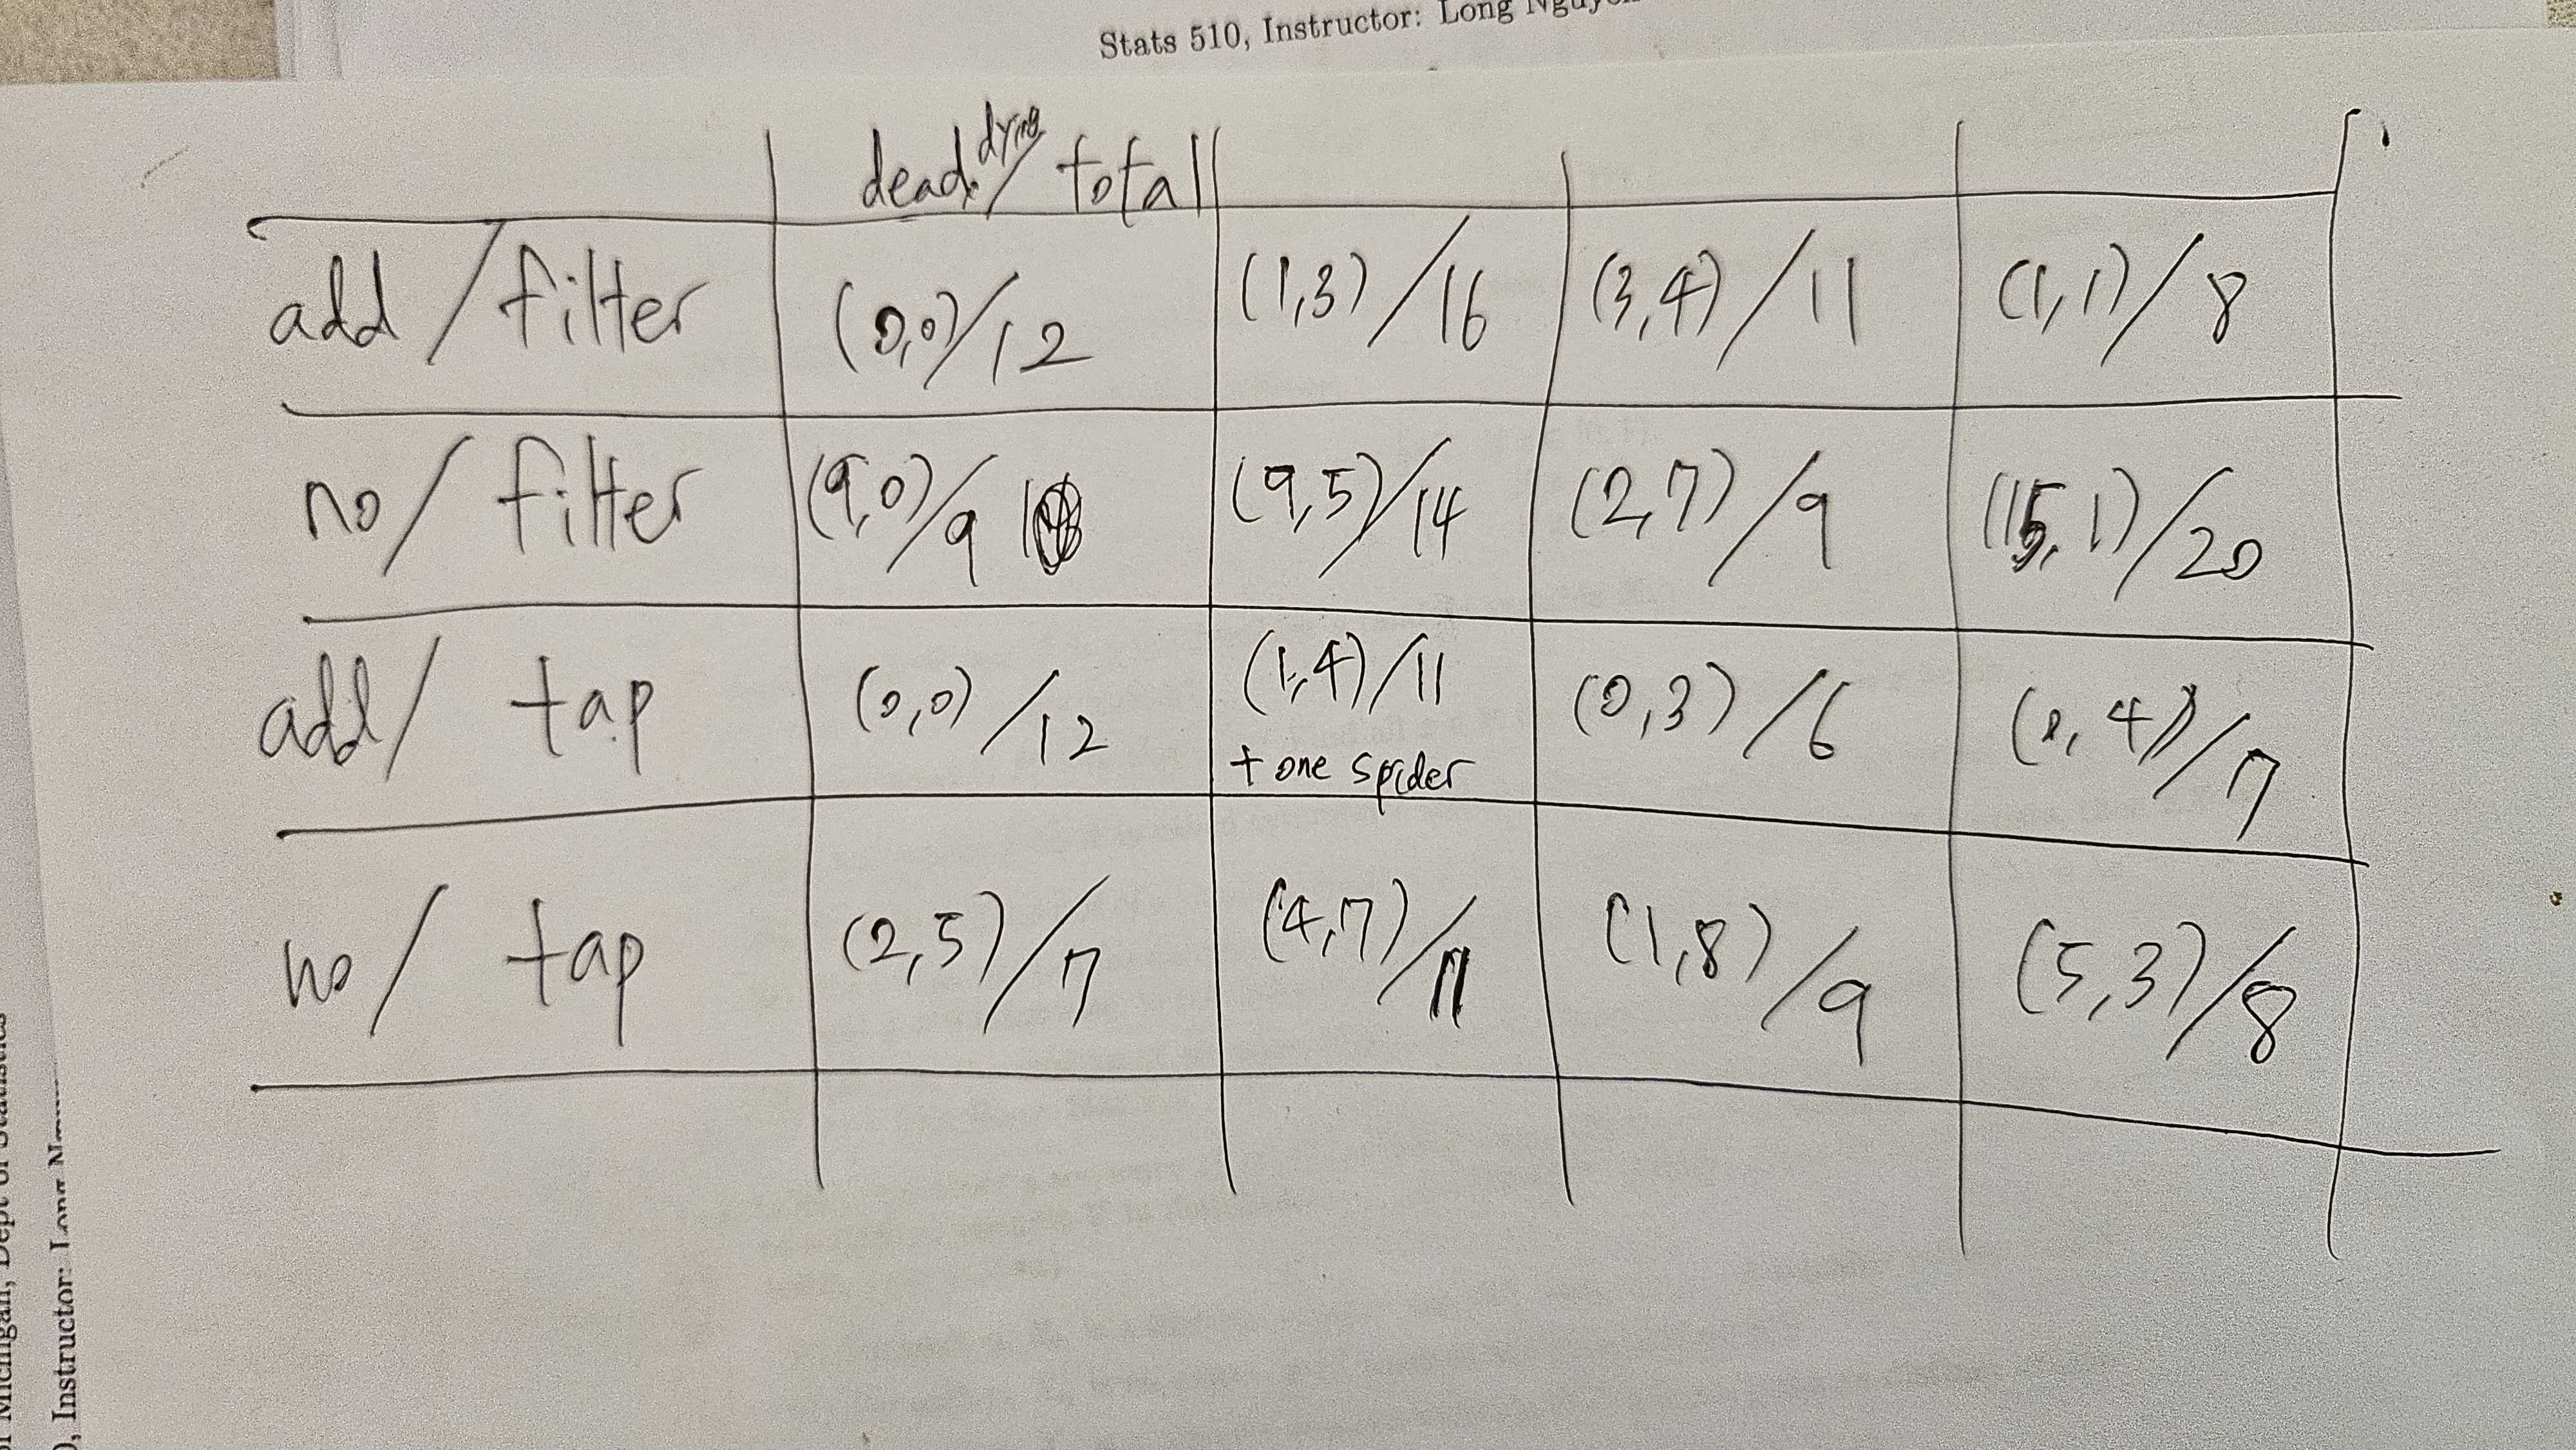 Stats 510, Instructor: Long
dead, dying / total
add / filter (0,0)/12 (1,3)/16 (3,4)/11 (1,1)/8
no / filter (9,0)/9 (9,5)/14 (2,7)/9 (15,1)/20
add / tap (0,0)/12 (1,4)/11 (0,3)/6 , 4)/7
+ one spider
no / tap (2,5)/7 (4,7)/11 (1,8)/9 (5,3)/8
Michigan, Dept of Statistics
, Instructor: Long